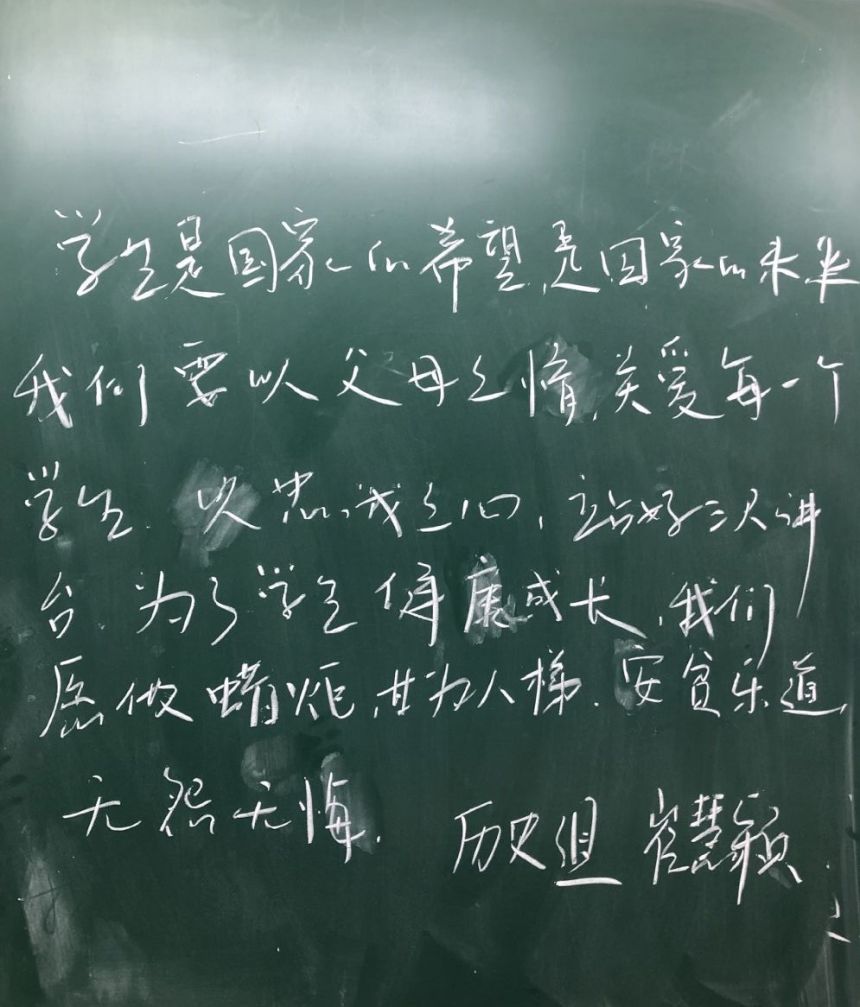 学生是国家的希望,是国家的未来
我们要以父母之情,关爱每一个
学生.以忠诚之心,站好三尺讲
台 为了学生健康成长,我们
愿做蜡炬,甘为人梯.安贫乐道,
无怨无悔.
历史组 崔慧颖